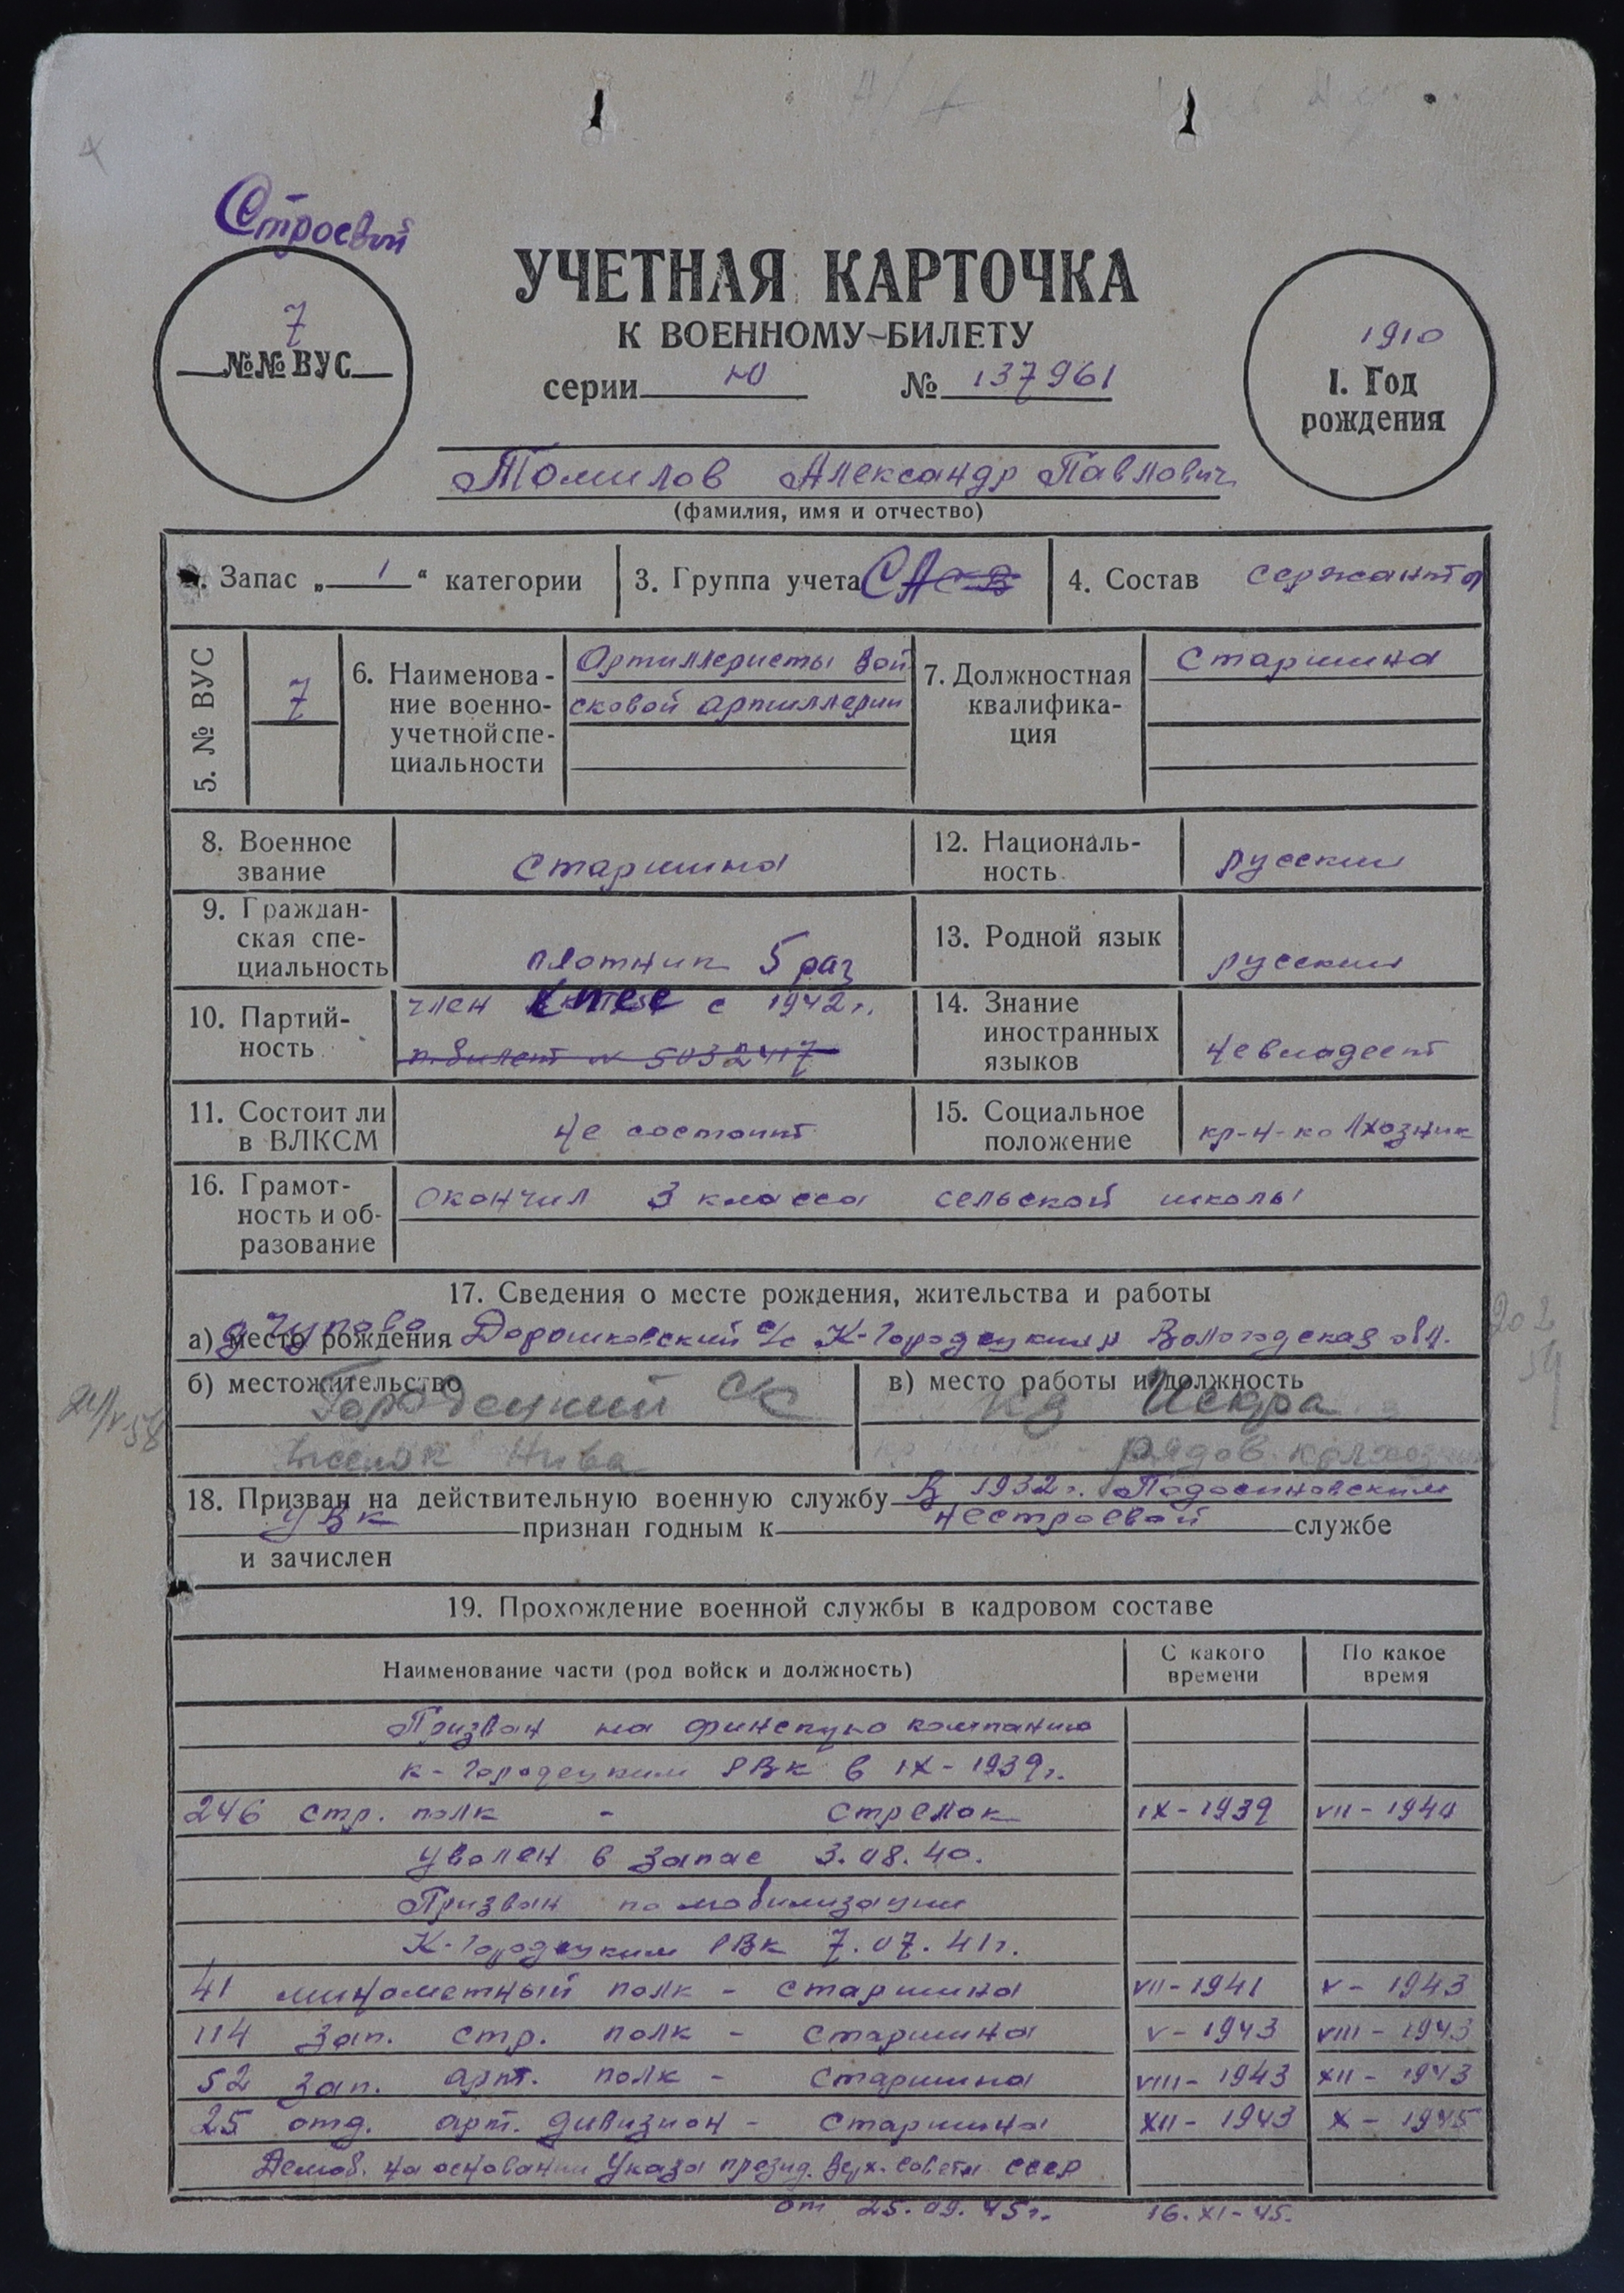 Строевой
7
№№ ВУС
УЧЕТНАЯ КАРТОЧКА
К ВОЕННОМУ БИЛЕТУ
серии Ю № 137961
1910
1. Год
рождения
Томилов Александр Павлович
(фамилия, имя и отчество)
2. Запас „ 1 “ категории
3. Группа учета СА
4. Состав сержанты
5. № ВУС
7
6. Наименова-
ние военно-
учетной спе-
циальности
Артиллеристы вой
сковой артиллерии
7. Должностная
квалифика-
ция
Старшина
8. Военное
звание
Старшина
12. Националь-
ность
русский
9. Граждан-
ская спе-
циальность
плотник 5 раз
13. Родной язык
русский
10. Партий-
ность
член КПСС с 1942 г.
п. билет № 5032417
14. Знание
иностранных
языков
не владеет
11. Состоит ли
в ВЛКСМ
не состоит
15. Социальное
положение
кр-н-колхозник
16. Грамот-
ность и об-
разование
окончил 3 класса сельской школы
17. Сведения о месте рождения, жительства и работы
а) место рождения Дорошковский с/с К-Городецкий р Вологодская обл.
б) местожительство
Городецкий с/с
Нива
в) место работы и должность
Искра
рядов. колхозник
18. Призван на действительную военную службу В 1932 г. Подосиновским
УВК признан годным к нестроевой службе
и зачислен
19. Прохождение военной службы в кадровом составе
Наименование части (род войск и должность)
С какого
времени
По какое
время
Призван на финскую компанию
К-Городецким РВК в IX-1939 г.
246 стр. полк - стрелок IX-1939 VII-1940
уволен в запас 3.08.40.
Призван по мобилизации
К-Городецким РВК 7.07.41 г.
41 минометный полк - старшина VII-1941 V-1943
114 зап. стр. полк - старшина V-1943 VIII-1943
52 зап. арт. полк - старшина VIII-1943 XII-1943
25 отд. арт. дивизион - старшина XII-1943 X-1945
Демоб. на основании Указа презид. Верх. Совета СССР
от 25.09.45 г. 16.XI-45.